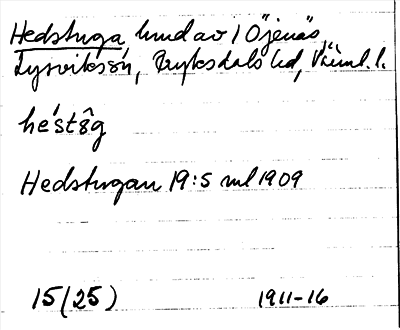 Hedstuga hmd av 1 Öjenäs,
Lysvikssn, Fryksdals hd, Värml. l.
hé́stŝg
Hedstugan 19:5 ml 1909
15(25) 1911-16